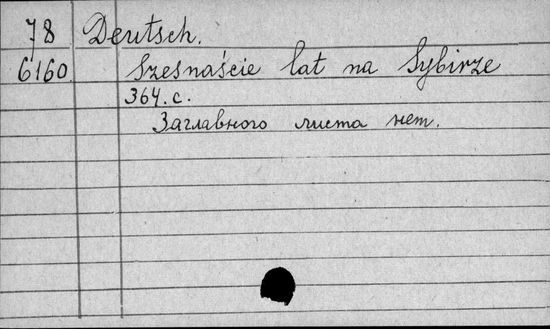 78 Deutsch.
6160 Szesnaście lat na Sybirze
364. с.
Заглавного листа нет.